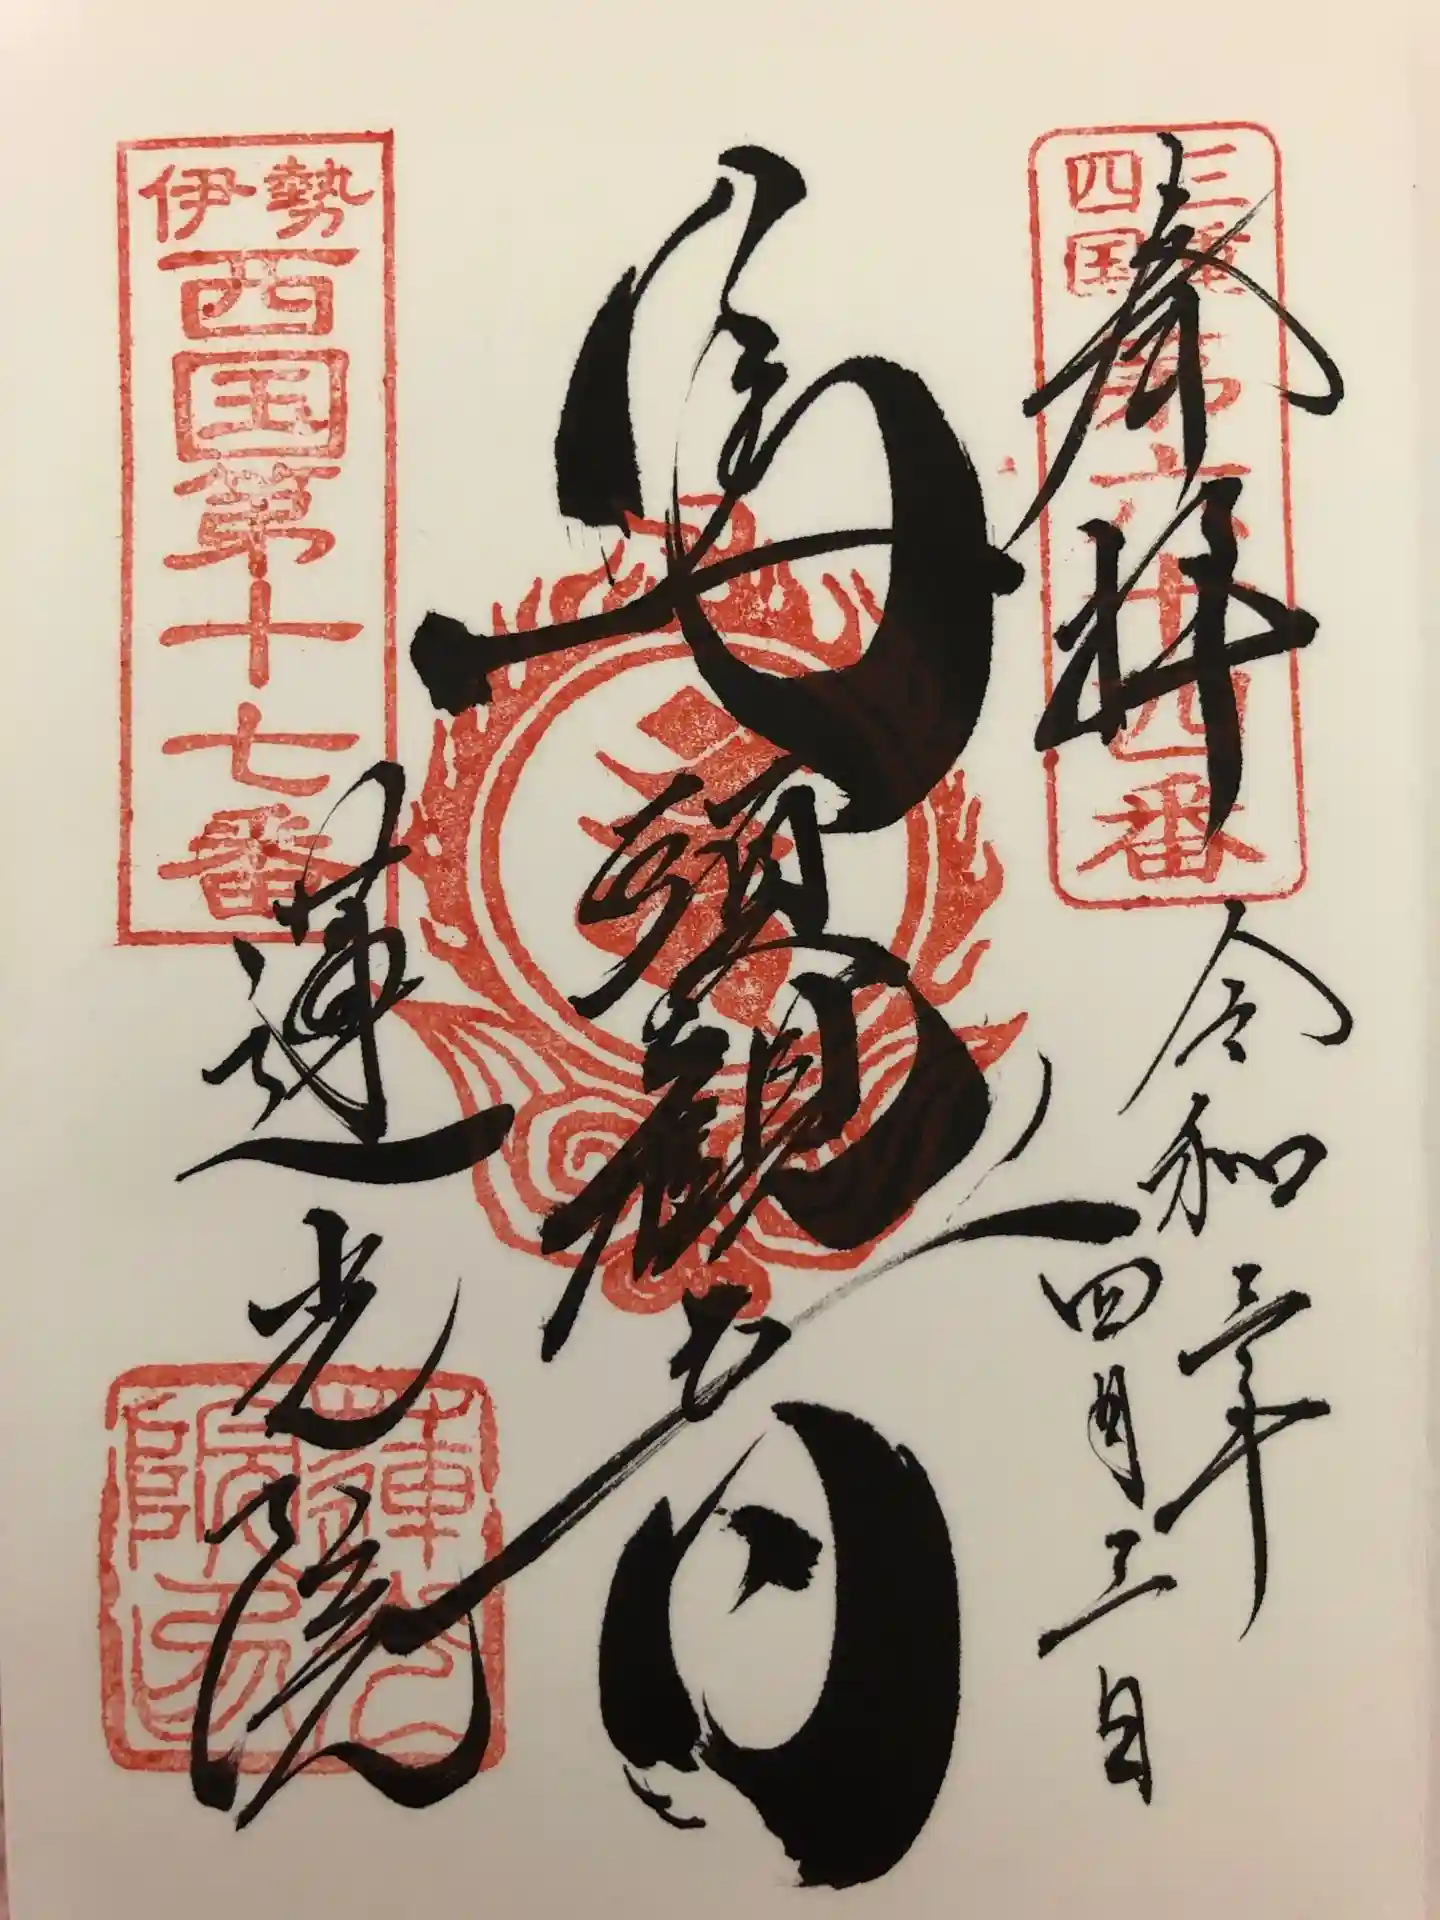 奉拝
三重
四国
第六十四番
令和三年
四月三日
馬頭観世音
勢伊
西国第十七番
蓮光院
蓮光
院印